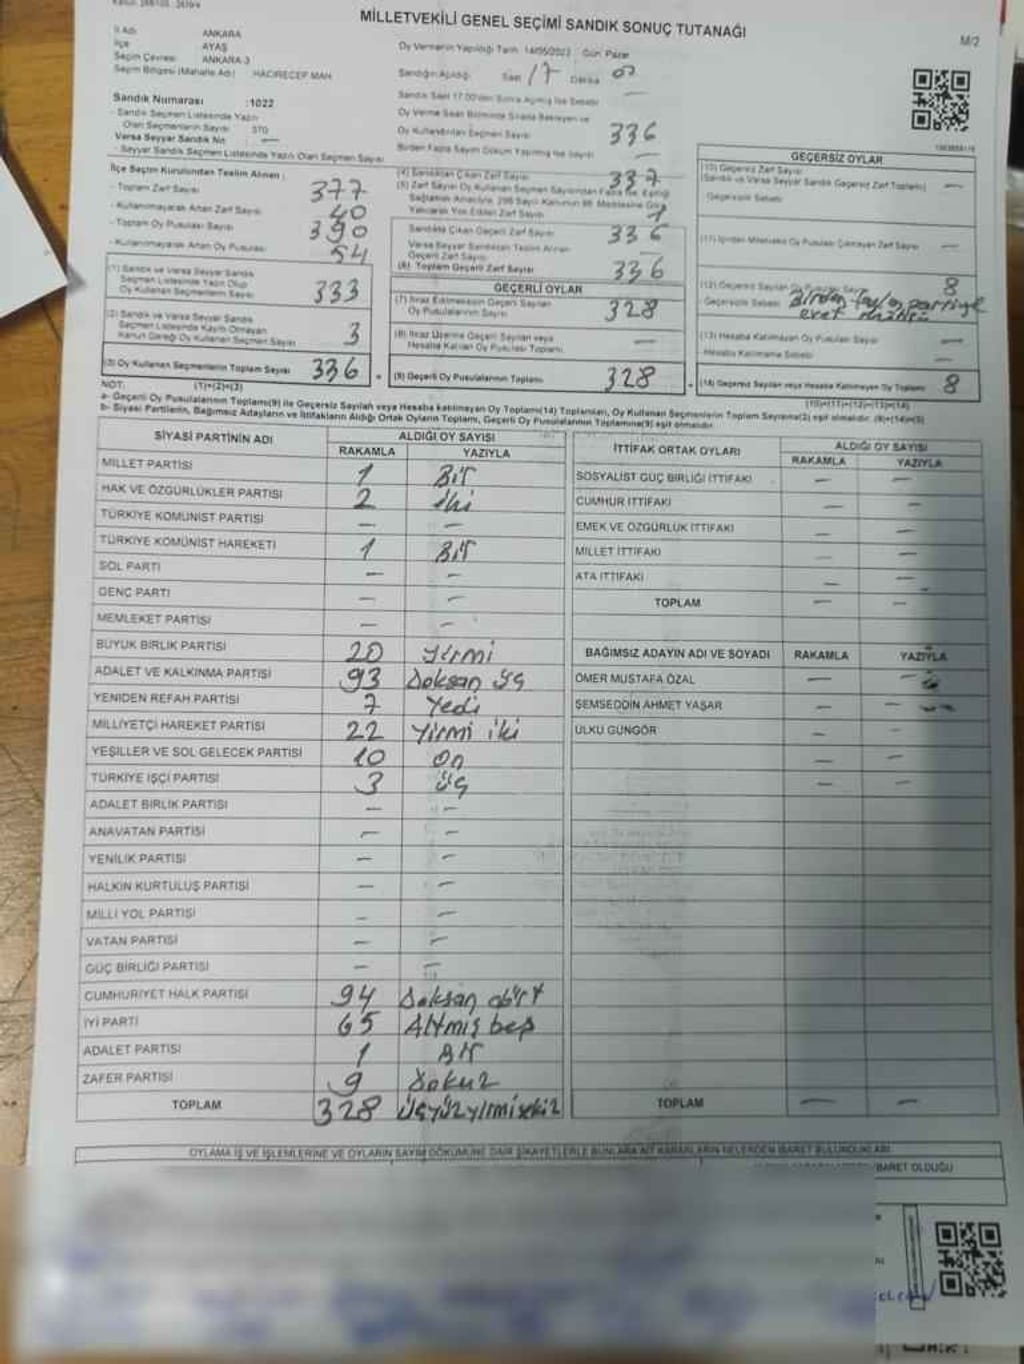 MİLLETVEKİLİ GENEL SEÇİMİ SANDIK SONUÇ TUTANAĞI
M/2
İl Adı ANKARA
İlçe AYAŞ
Seçim Çevresi ANKARA-3
Seçim Bölgesi (Mahalle Adı) HACIRECEP MAH.
Oy Vermenin Yapıldığı Tarih 14/05/2023 Gün Pazar
Sandığın Açıldığı Saat 17 Dakika
Sandık Numarası :1022
- Sandık Seçmen Listesinde Yazılı
Olan Seçmenlerin Sayısı 370
Varsa Seyyar Sandık No —
- Seyyar Sandık Seçmen Listesinde Yazılı Olan Seçmen Sayısı
Oy Kullandırılan Seçmen Sayısı 336
Birden Fazla Sayım Döküm Yapılmış İse Sayısı —
İlçe Seçim Kurulundan Teslim Alınan :
- Toplam Zarf Sayısı 377
- Kullanılmayarak Artan Zarf Sayısı 40
- Toplam Oy Pusulası Sayısı 390
- Kullanılmayarak Artan Oy Pusulası 54
(1) Sandık ve Varsa Seyyar Sandık
Seçmen Listesinde Yazılı Olup
Oy Kullanan Seçmenlerin Sayısı 333
(2) Sandık ve Varsa Seyyar Sandık
Seçmen Listesinde Kayıtlı Olmayan
Kanun Gereği Oy Kullanan Seçmen Sayısı 3
(3) Oy Kullanan Seçmenlerin Toplam Sayısı 336
(1)+(2)=(3)
(4) Sandıktan Çıkan Zarf Sayısı 337
Yakılarak Yok Edilen Zarf Sayısı 1
Sandıkta Çıkan Geçerli Zarf Sayısı 336
Varsa Seyyar Sandıktan Teslim Alınan
Geçerli Zarf Sayısı —
(6) Toplam Geçerli Zarf Sayısı 336
GEÇERLİ OYLAR
(7) İtiraz Edilmeksizin Geçerli Sayılan
Oy Pusulalarının Sayısı 328
(8) İtiraz Üzerine Geçerli Sayılan veya
Hesaba Katılan Oy Pusulası Toplamı —
(9) Geçerli Oy Pusulalarının Toplamı 328
GEÇERSİZ OYLAR
(10) Geçersiz Zarf Sayısı
(Sandık ve Varsa Seyyar Sandık Geçersiz Zarf Toplamı) —
Geçersizlik Sebebi
8
- Geçersizlik Sebebi Birden fazla partiye
evet mührü
(13) Hesaba Katılmayan Oy Pusulası Sayısı —
Hesaba Katılmama Sebebi —
(14) Geçersiz Sayılan veya Hesaba Katılmayan Oy Toplamı 8
(10)+(11)+(12)+(13)=(14)
NOT:
a- Geçerli Oy Pusulalarının Toplamı(9) ile Geçersiz Sayılan veya Hesaba katılmayan Oy Toplamı(14) Toplamları, Oy Kullanan Seçmenlerin Toplam Sayısına(3) eşit olmalıdır. (9)+(14)=(3)
b- Siyasi Partilerin, Bağımsız Adayların ve İttifakların Aldığı Ortak Oyların Toplamı, Geçerli Oy Pusulalarının Toplamına(9) eşit olmalıdır.
SİYASİ PARTİNİN ADI ALDIĞI OY SAYISI
RAKAMLA YAZIYLA
MİLLET PARTİSİ 1 Bir
HAK VE ÖZGÜRLÜKLER PARTİSİ 2 iki
TÜRKİYE KOMÜNİST PARTİSİ — —
TÜRKİYE KOMÜNİST HAREKETİ 1 Bir
SOL PARTİ — —
GENÇ PARTİ — —
MEMLEKET PARTİSİ — —
BÜYÜK BİRLİK PARTİSİ 20 yirmi
ADALET VE KALKINMA PARTİSİ 93 Doksan üç
YENİDEN REFAH PARTİSİ 7 Yedi
MİLLİYETÇİ HAREKET PARTİSİ 22 Yirmi iki
YEŞİLLER VE SOL GELECEK PARTİSİ 10 On
TÜRKİYE İŞÇİ PARTİSİ 3 üç
ADALET BİRLİK PARTİSİ — —
ANAVATAN PARTİSİ — —
YENİLİK PARTİSİ — —
HALKIN KURTULUŞ PARTİSİ — —
MİLLİ YOL PARTİSİ — —
VATAN PARTİSİ — —
GÜÇ BİRLİĞİ PARTİSİ — —
CUMHURİYET HALK PARTİSİ 94 Doksan dört
İYİ PARTİ 65 Altmış beş
ADALET PARTİSİ 1 Bir
ZAFER PARTİSİ 9 Dokuz
TOPLAM 328 üçyüzyirmisekiz
İTTİFAK ORTAK OYLARI ALDIĞI OY SAYISI
RAKAMLA YAZIYLA
SOSYALİST GÜÇ BİRLİĞİ İTTİFAKI — —
CUMHUR İTTİFAKI — —
EMEK VE ÖZGÜRLÜK İTTİFAKI — —
MİLLET İTTİFAKI — —
ATA İTTİFAKI — —
TOPLAM — —
BAĞIMSIZ ADAYIN ADI VE SOYADI RAKAMLA YAZIYLA
ÖMER MUSTAFA ÖZAL — —
ŞEMSEDDİN AHMET YAŞAR — —
ÜLKÜ GÜNGÖR — —
TOPLAM — —
OYLAMA İŞ VE İŞLEMLERİNE VE OYLARIN SAYIM DÖKÜMÜNE DAİR ŞİKAYETLERLE BUNLARA AİT KARARLARIN NELERDEN İBARET BULUNDUKLARI
İBARET OLDUĞU